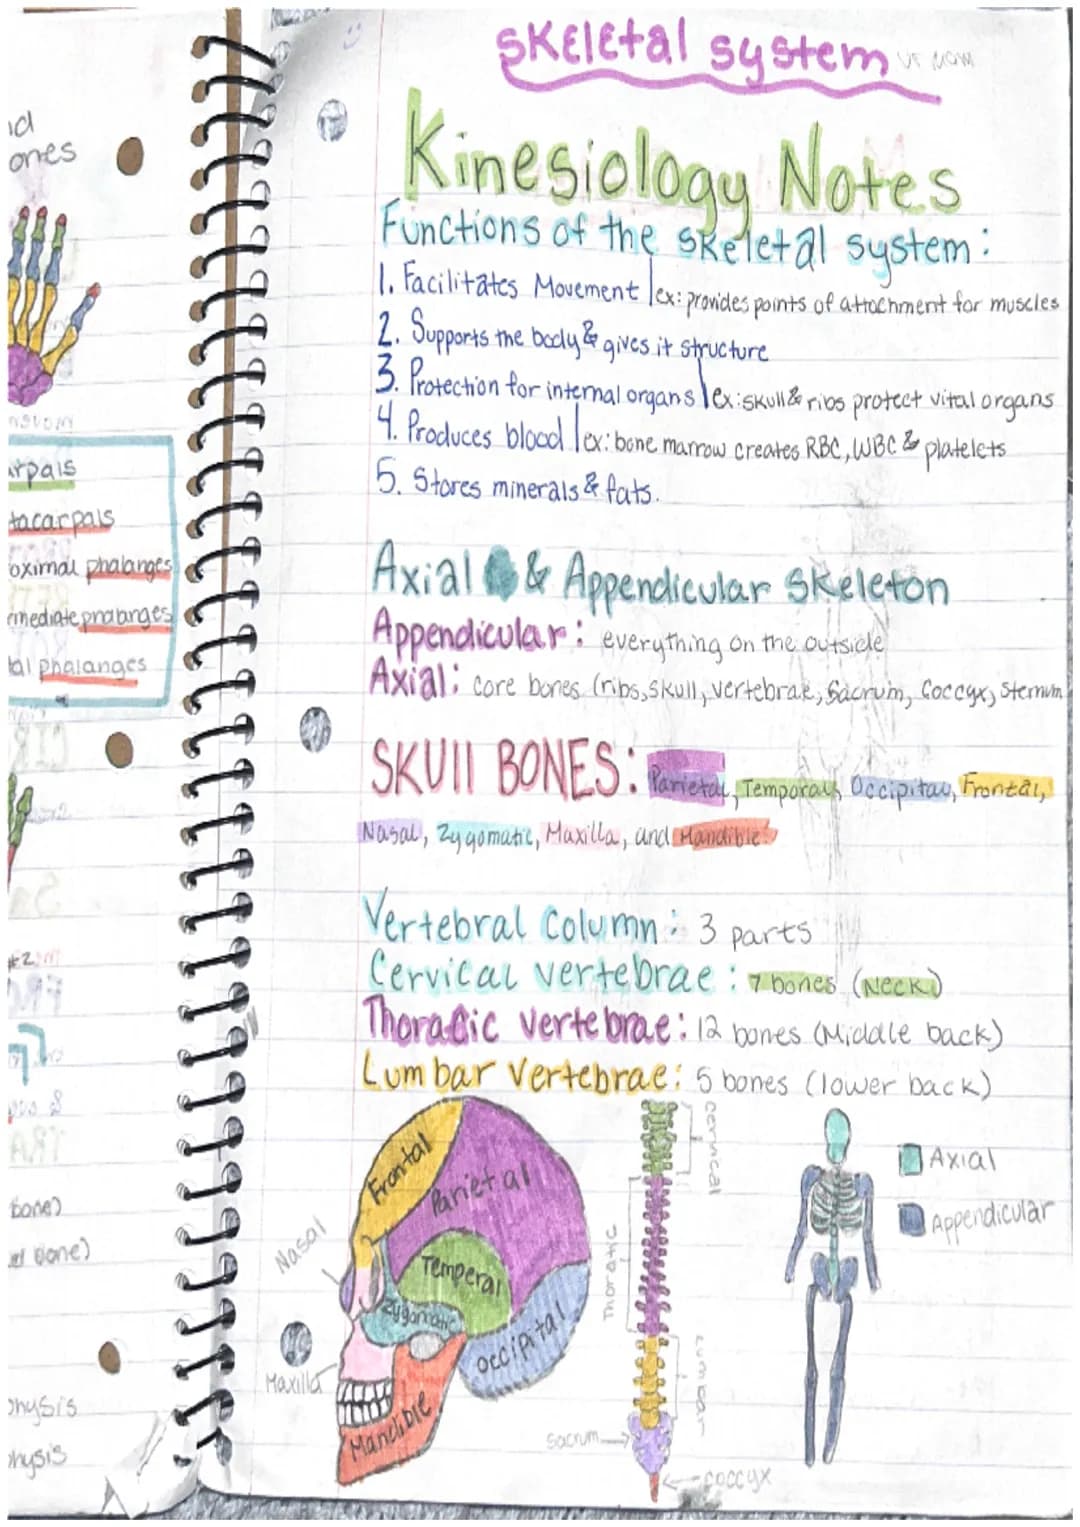 nd
ones
arpals
tacarpals
oximal phalanges
rmediate phalanges
tal phalanges
bone)
physis
physis
Skeletal system
Kinesiology Notes
Functions of the skeletal system:
1. Facilitates Movement | ex: provides points of attachment for muscles
2. Supports the body & gives it structure
3. Protection for internal organs | ex: skull & ribs protect vital organs
4. Produces blood | ex: bone marrow creates RBC, WBC & platelets
5. Stores minerals & fats.
Axial & Appendicular Skeleton
Appendicular: everything on the outside
Axial: core bones (ribs, skull, vertebrae, Sacrum, Coccyx, Sternum
SKUll BONES: Parietal, Temporal, Occipital, Frontal,
Nasal, Zygomatic, Maxilla, and Mandible.
Vertebral Column: 3 parts
Cervical vertebrae: 7 bones (Neck)
Thoracic Vertebrae: 12 bones (Middle back)
Lumbar Vertebrae: 5 bones (lower back)
Frontal
Parietal
Nasal
Temperal
Zygomatic
Occipital
Maxilla
Mandible
cervical
Thoratic
Lumbar
Sacrum
coccyx
Axial
Appendicular